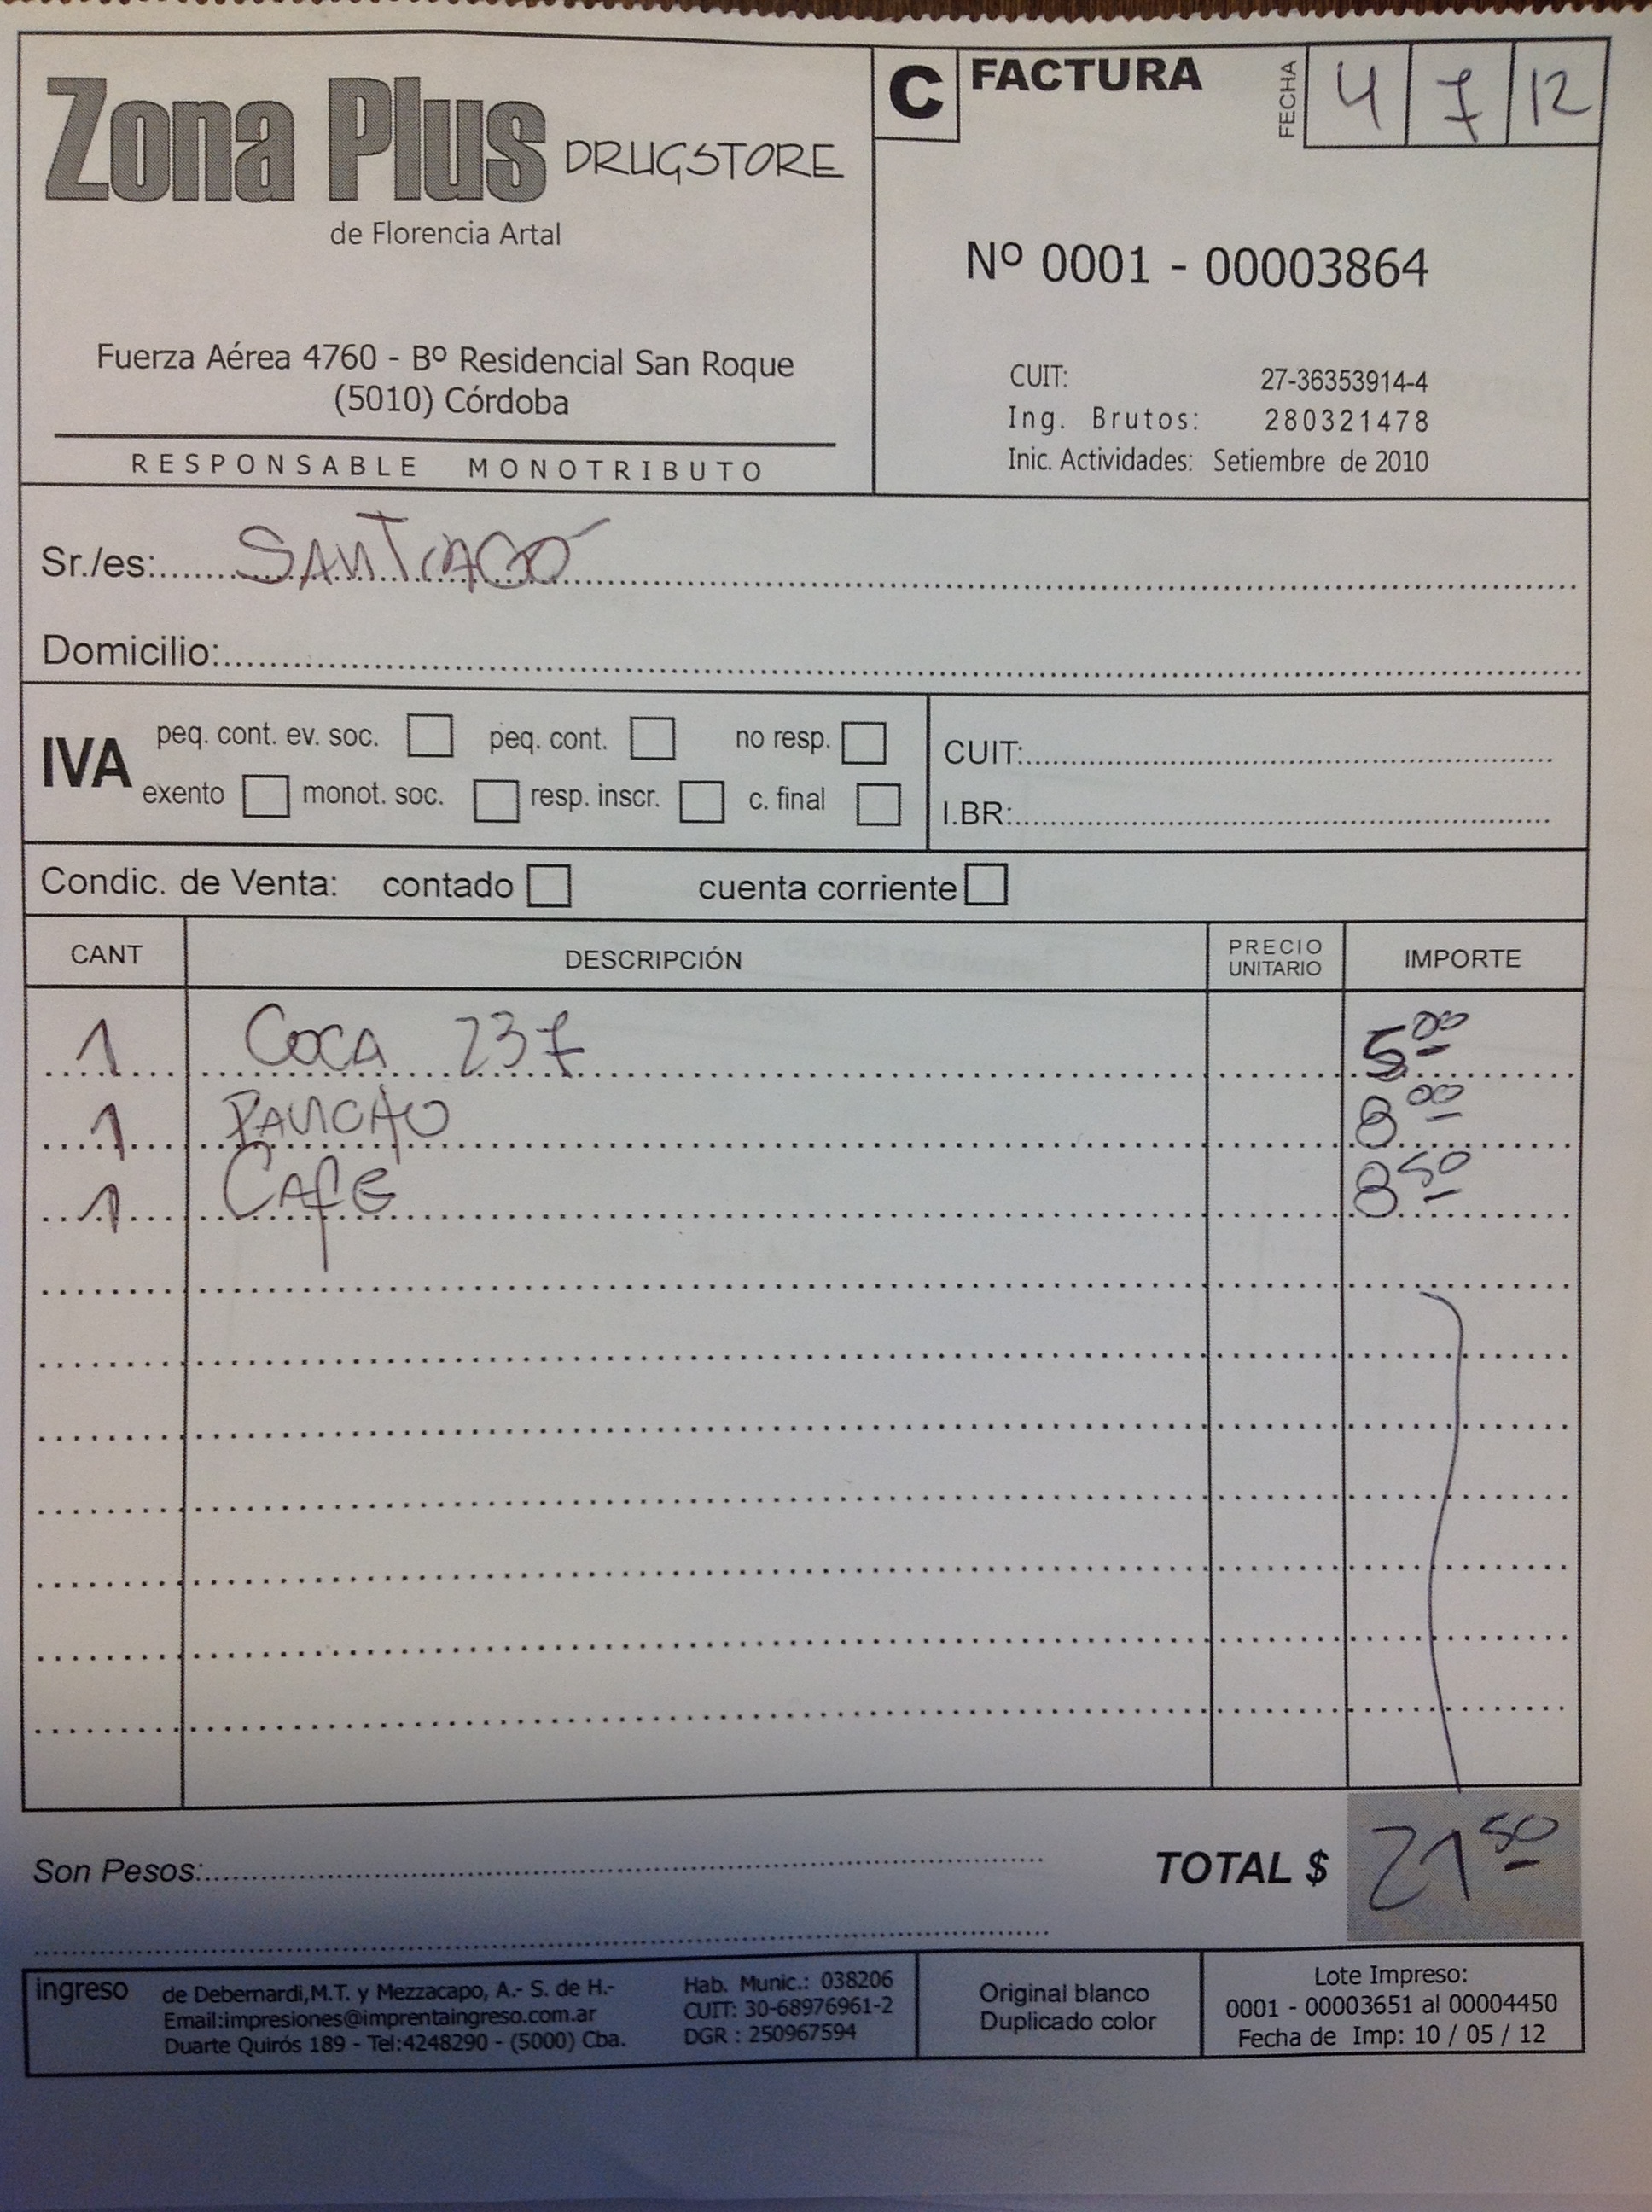 Zona Plus DRUGSTORE
de Florencia Artal
Fuerza Aérea 4760 - Bº Residencial San Roque
(5010) Córdoba
RESPONSABLE MONOTRIBUTO
C FACTURA
FECHA 4 7 12
Nº 0001 - 00003864
CUIT: 27-36353914-4
Ing. Brutos: 280321478
Inic. Actividades: Setiembre de 2010
Sr./es: SANTIAGO
Domicilio:
IVA
peq. cont. ev. soc. peq. cont. no resp.
exento monot. soc. resp. inscr. c. final
CUIT:
I.BR:
Condic. de Venta: contado cuenta corriente
CANT DESCRIPCIÓN PRECIO UNITARIO IMPORTE
1 COCA 237 5 00
1 PANCHO 8 00
1 CAFE 8 50
Son Pesos: TOTAL $ 21 50
ingreso
de Debernardi,M.T. y Mezzacapo, A.- S. de H.-
Email:impresiones@imprentaingreso.com.ar
Duarte Quirós 189 - Tel:4248290 - (5000) Cba.
Hab. Munic.: 038206
CUIT: 30-68976961-2
DGR : 250967594
Original blanco
Duplicado color
Lote Impreso:
0001 - 00003651 al 00004450
Fecha de Imp: 10 / 05 / 12